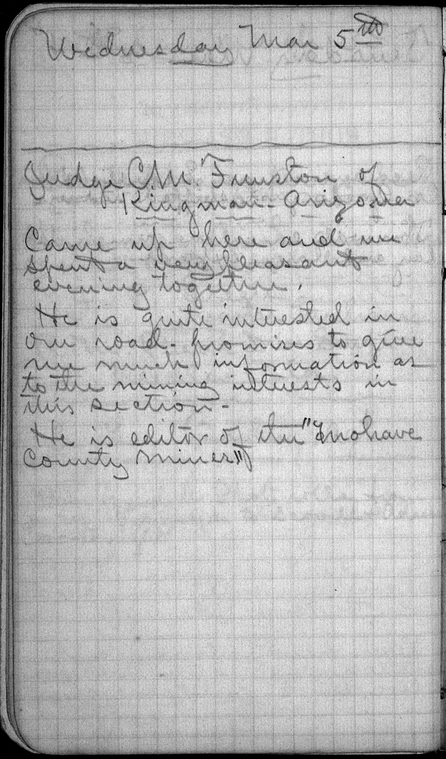 Wednesday Mar 5th
Judge C.M. Funston of
Kingman - Arizona
Came up here and we
spent a very pleasant
evening together.
He is quite interested in
our road - promises to give
me much information as
to the mining interests in
this section -
He is editor of the "Mohave
County Miner"